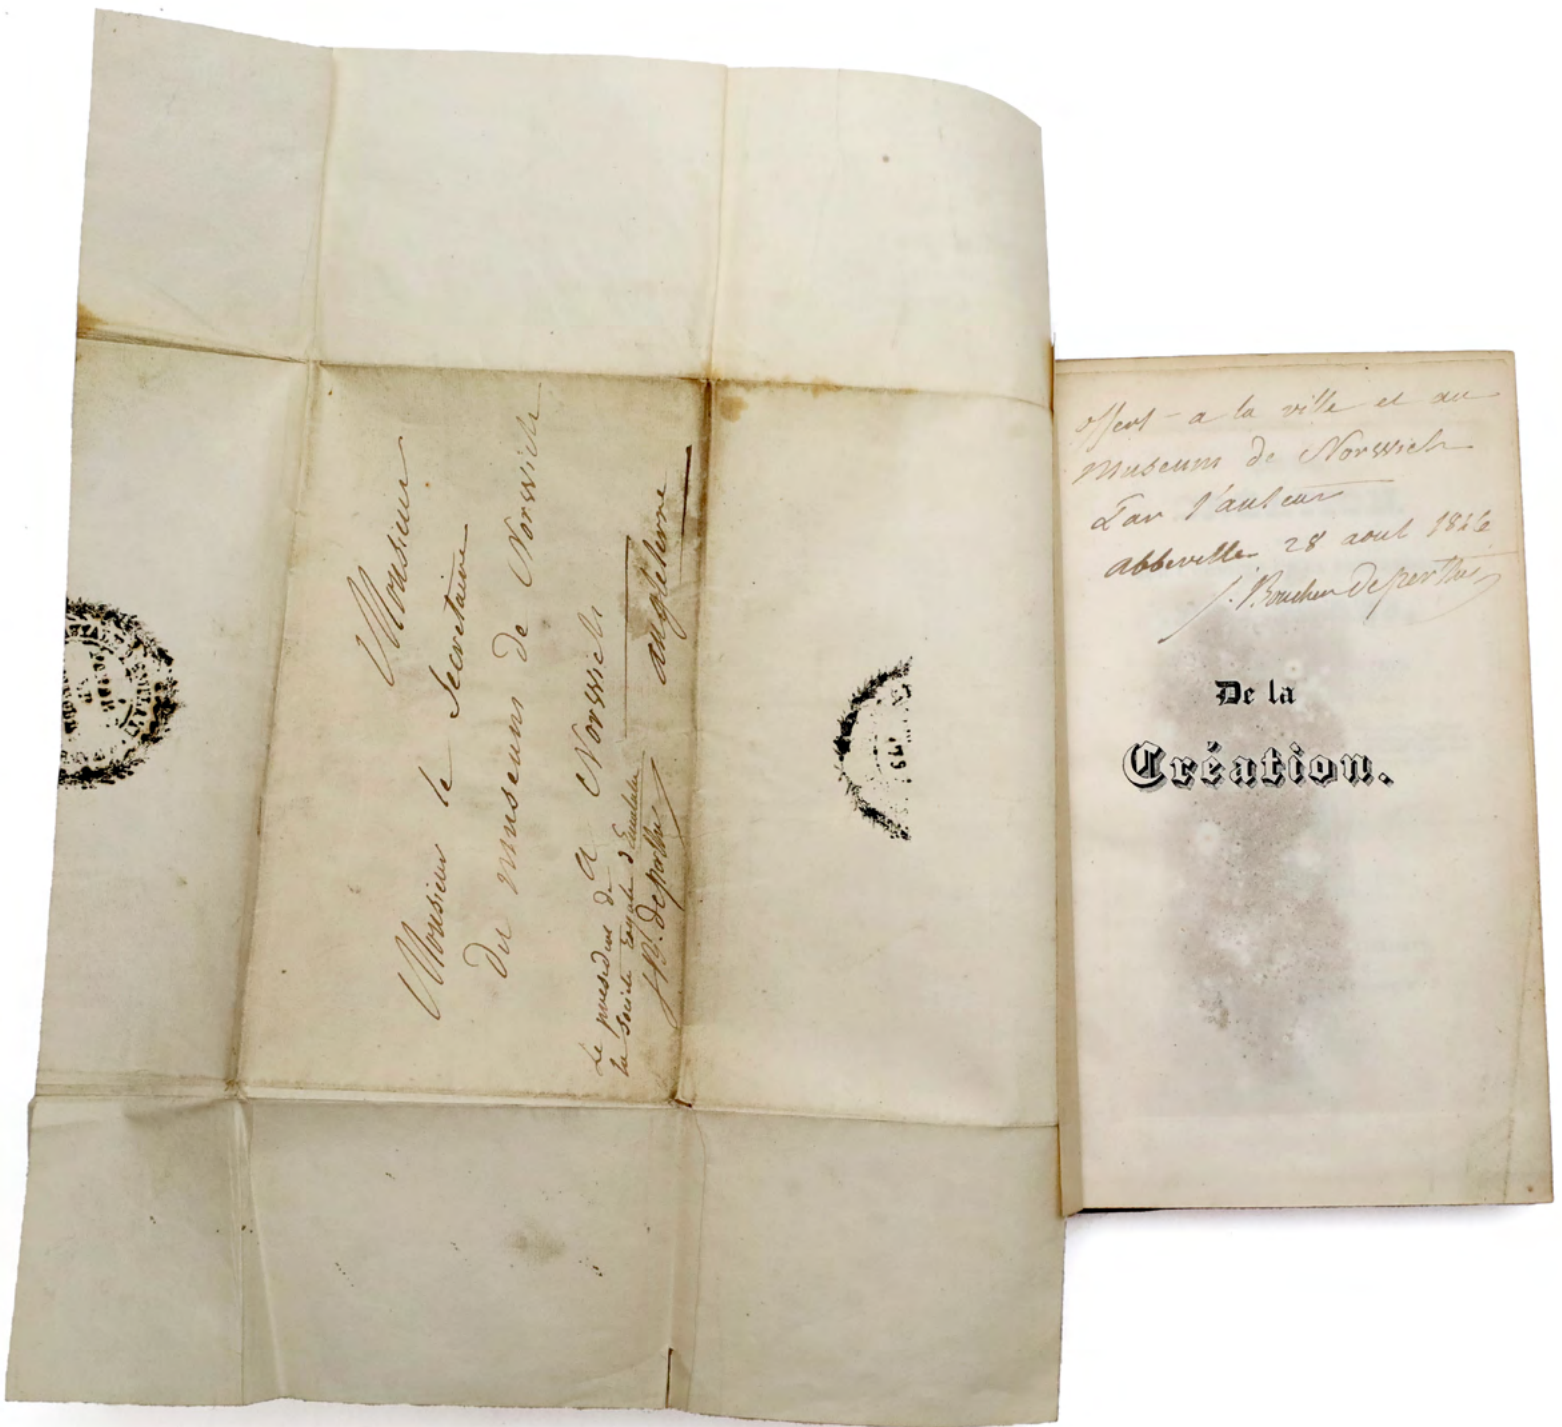 Monsieur
Monsieur le Secretaire
Du museum de Norwich
a Norwich
angleterre
Le president de
la Société Royale d'Emulation
J. B. de perthes
offert a la ville et au
museum de Norwich
Par l'auteur
abbeville 28 aout 1846
J. Boucher de perthes
De la
Création.